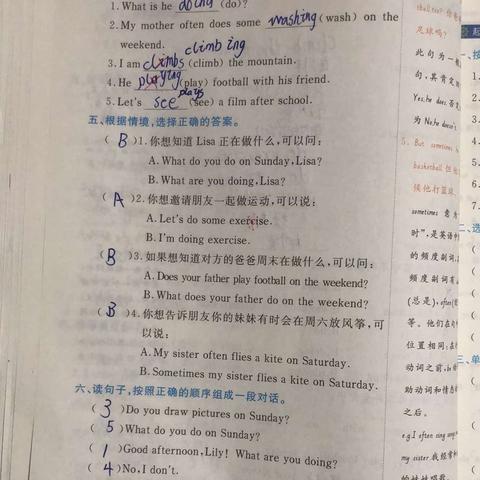 1. What is he doing (do)?
2. My mother often does some washing (wash) on the
weekend.
climbing
3. I am climbs (climb) the mountain.
4. He playing (play) football with his friend.
plays
5. Let's see (see) a film after school.
五、根据情境,选择正确的答案。
( B )1. 你想知道 Lisa 正在做什么,可以问:
A. What do you do on Sunday, Lisa?
B. What are you doing, Lisa?
( A )2. 你想邀请朋友一起做运动,可以说:
A. Let's do some exercise.
B. I'm doing exercise.
( B )3. 如果想知道对方的爸爸周末在做什么,可以问:
A. Does your father play football on the weekend?
B. What does your father do on the weekend?
( B )4. 你想告诉朋友你的妹妹有时会在周六放风筝,可
以说:
A. My sister often flies a kite on Saturday.
B. Sometimes my sister flies a kite on Saturday.
六、读句子,按照正确的顺序组成一段对话。
( 3 )Do you draw pictures on Sunday?
( 5 )What do you do on Sunday?
( 1 )Good afternoon, Lily! What are you doing?
( 4 )No, I don't.
足球吗?
此句为一般
句,其肯定回
Yes, he does. 否定
为 No, he doesn't.
5. But sometimes h
basketball 但他
候他打篮球.
sometimes 意为
时”,是英语中
的频度副词.
频度副词有
(总是), often(
等。他们在句
位置相同:在
动词之前, be 动
助动词和情态
之后。
e.g. I often sing song
my sister. 我经常和
的妹妹唱歌.